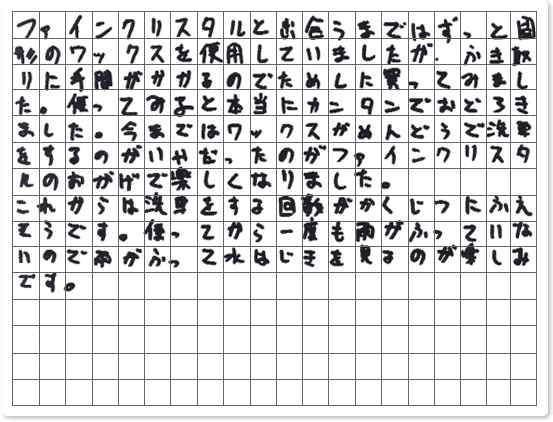 ファインクリスタルと出合うまではずっと固
形のワックスを使用していましたが、ふき取
りに手間がかかるのでためしに買ってみまし
た。使ってみると本当にカンタンでおどろき
ました。今まではワックスがめんどうで洗車
をするのがいやだったのがファインクリスタ
ルのおかげで楽しくなりました。
これからは洗車をする回数がかくじつにふえ
そうです。使ってから一度も雨がふっていな
いので雨がふって水はじきを見るのが楽しみ
です。